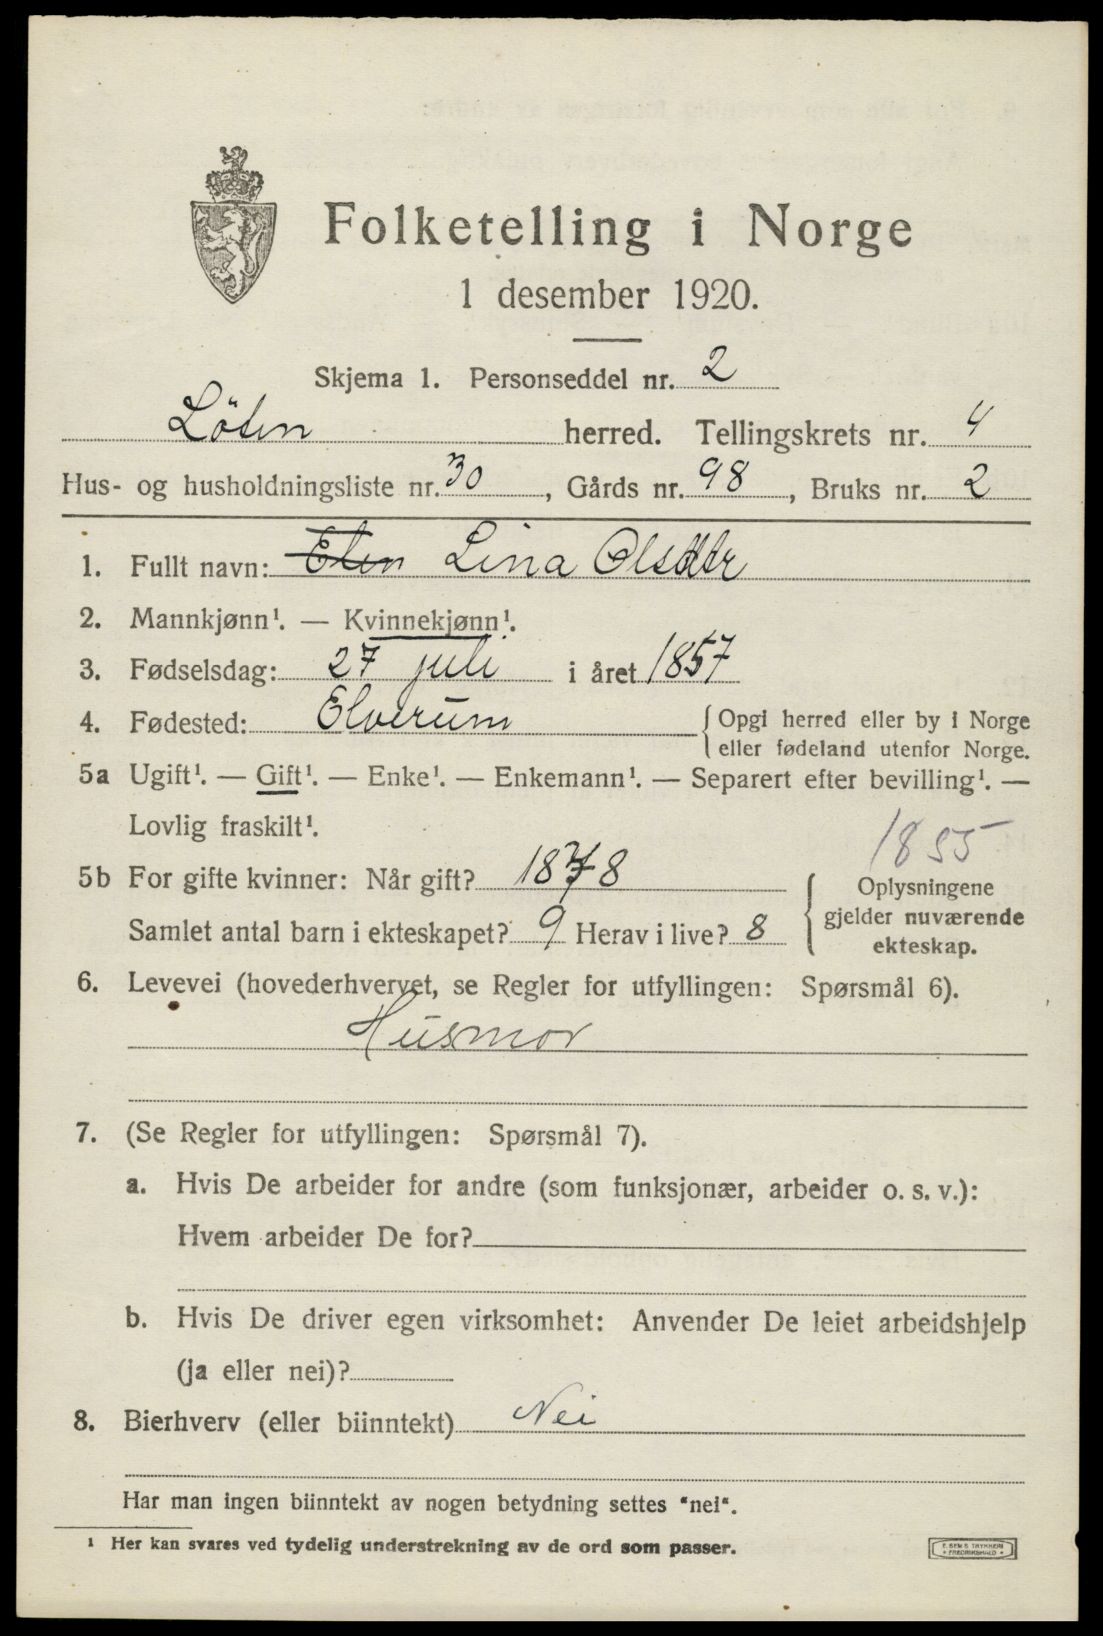 Folketelling i Norge
1 desember 1920.
Skjema 1. Personseddel nr. 2
Löten herred. Tellingskrets nr. 4
Hus- og husholdningsliste nr. 30, Gårds nr. 98, Bruks nr. 2
1. Fullt navn: Elen Lina Olsdtr
2. Mannkjønn¹. — Kvinnekjønn¹.
3. Fødselsdag: 27 juli i året 1857
4. Fødested: Elverum {Opgi herred eller by i Norge
eller fødeland utenfor Norge.
5a Ugift¹. — Gift¹. — Enke¹. — Enkemann¹. — Separert efter bevilling¹. —
Lovlig fraskilt¹.
1855
5b For gifte kvinner: Når gift? 1878 { Oplysningene
gjelder nuværende
Samlet antal barn i ekteskapet? 9 Herav i live? 8
ekteskap.
6. Levevei (hovederhvervet, se Regler for utfyllingen: Spørsmål 6).
Husmor
7. (Se Regler for utfyllingen: Spørsmål 7).
a. Hvis De arbeider for andre (som funksjonær, arbeider o. s. v.):
Hvem arbeider De for?
b. Hvis De driver egen virksomhet: Anvender De leiet arbeidshjelp
(ja eller nei)?
8. Bierhverv (eller biinntekt) Nei
Har man ingen biinntekt av nogen betydning settes "nei".
¹ Her kan svares ved tydelig understrekning av de ord som passer.
E. SEM'S TRYKKERI
• FREDRIKSHALD •